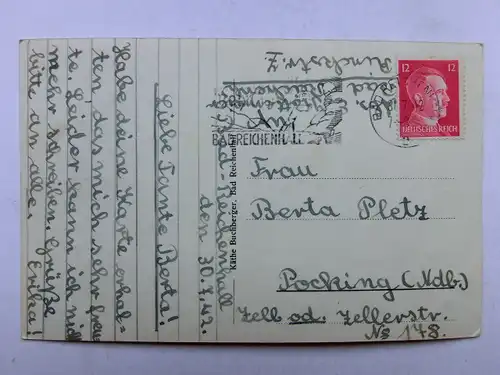 Bad-Reichenhall
den 30.7.42.
Liebe Tante Berta!
Habe deine Karte erhal=
ten das mich sehr freu
te. Leider kann ich nich
mehr schreiben. Grüße
bitte an alle.
Erika!
Käthe Buchberger, Bad Reichenhall
BAD REICHENHALL
12 12
DEUTSCHES REICH
Frau
Berta Pletz
Pocking (Ndb.)
Zell od. Zellerstr.
No 148.